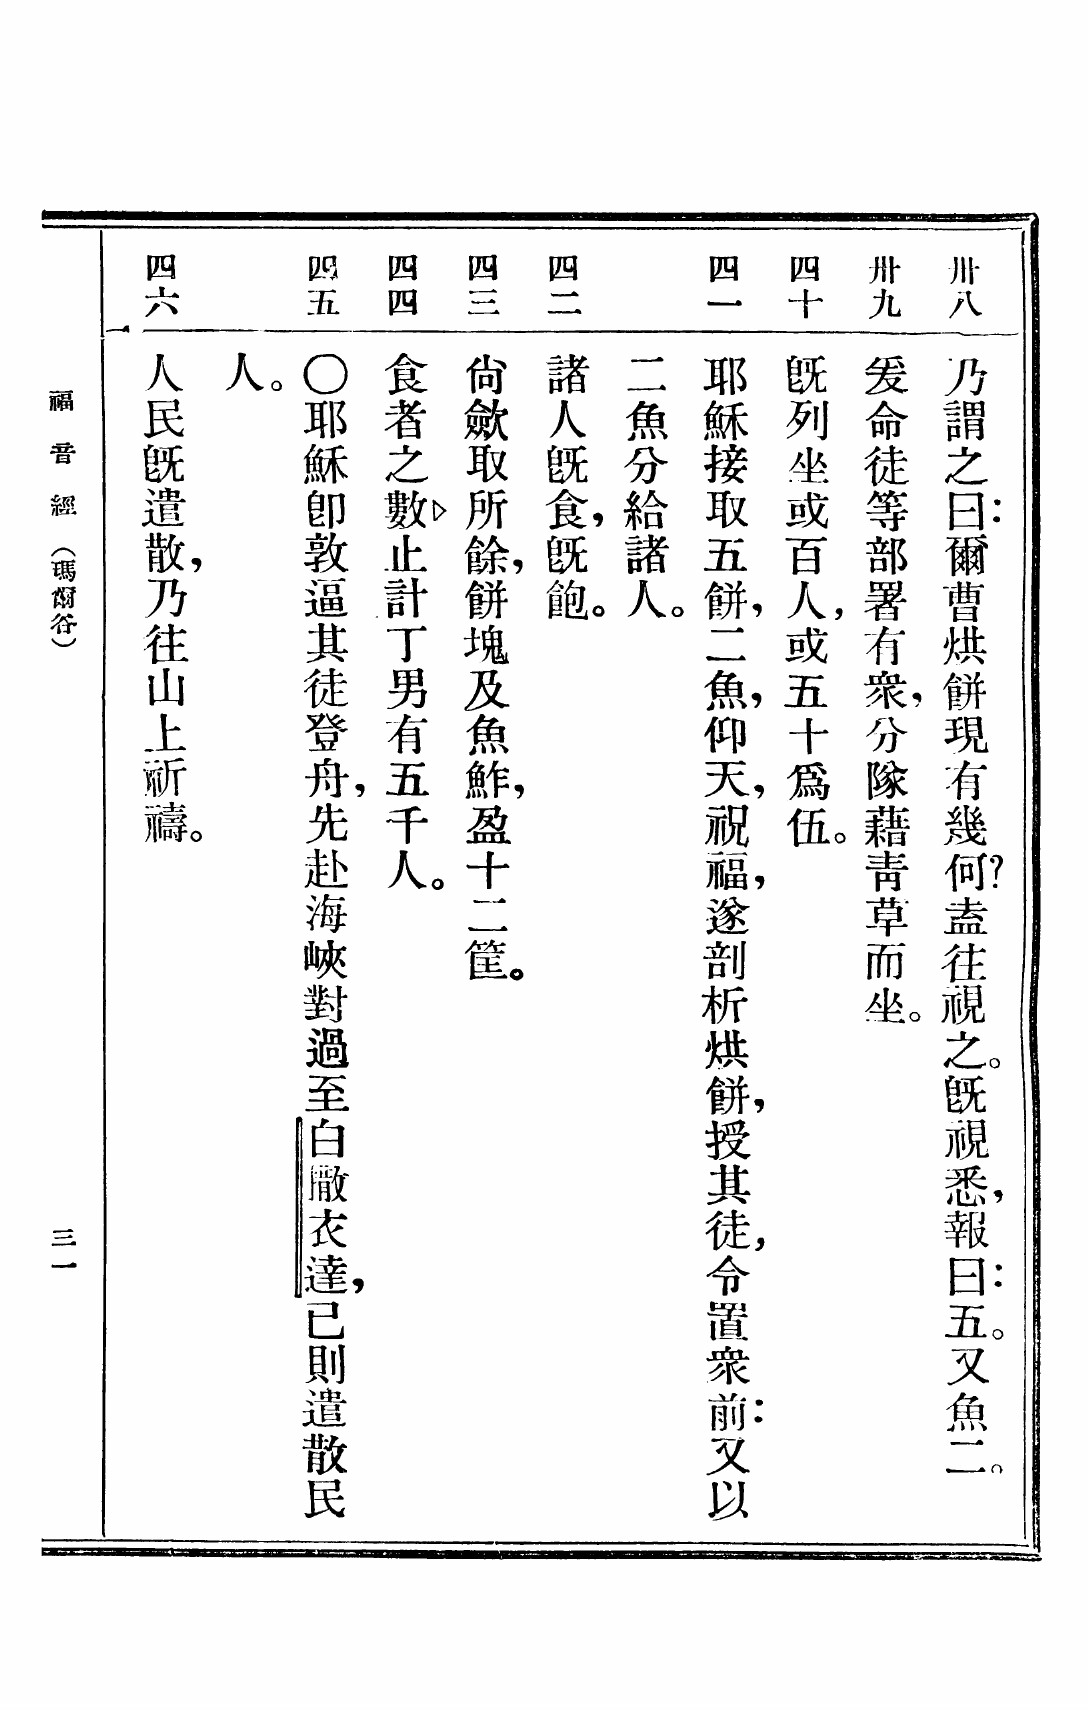 卅八 乃謂之曰：爾曹烘餅現有幾何？盍往視之。旣視悉，報曰：五。又魚二。
卅九 爰命徒等部署有衆，分隊藉靑草而坐。
四十 旣列坐或百人，或五十爲伍。
四一 耶穌接取五餅，二魚，仰天，祝福，遂剖析烘餅，授其徒，令置衆前：又以
二魚分給諸人。
四二 諸人旣食，旣飽。
四三 尙歛取所餘，餅塊及魚鮓，盈十二筐。
四四 食者之數，止計丁男有五千人。
四五 〇耶穌卽敦逼其徒登舟，先赴海峽對過至白撒衣達，已則遣散民
人。
四六 人民旣遣散，乃往山上祈禱。
福音經（瑪爾谷）
三一